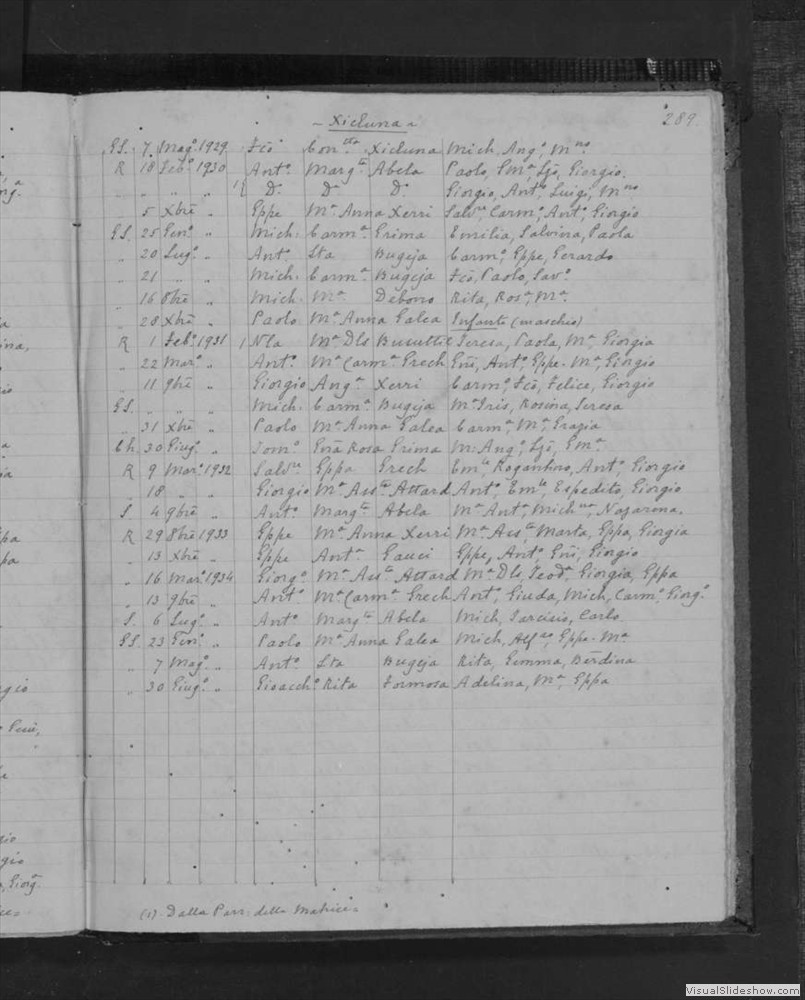 - Xicluna - 289.
E.S. 7 Magº 1929 Fcõ Con^cta Xicluna Mich, Angº, M^no
R 18 Febº 1930 Antº Marg^ta Abela Paolo, Em^a, Giorgio.
" " " 1{ Dº Dº Dº Giorgio, Antº, Luigi, M^no
" 5 Xbrē " Eppe M^a Anna Xerri Salv^re, Carmº, Antº, Giorgio
E.S. 25 Genº " Mich: Carm^a Grima Emilia, Salvina, Paola
" 20 Lugº " Antº Lta Bugeja Carmº, Eppe, Gerardo
" 21 " " Mich: Carm^a Bugeja Fcõ, Paolo, Savº
" 16 8brē " Mich: M^a Debono Rita, Ros^a, M^a
" 28 Xbrē " Paolo M^a Anna Galea Infante (maschio)
R 1 Febº 1931 1 Nla M^a Dls Busuttil Teresa, Paola, M^a, Giorgia
" 22 Marº " Antº M^a Carm^a Grech Antº, Eppe-M^a, Giorgio
" 11 9brē " Giorgio Ang^a Xerri Carmº, Fcõ, Felice, Giorgio
E.S. " " " Mich: Carm^a Bugeja M^a Iris, Rosina, Teresa
" 31 Xbrē " Paolo M^a Anna Galea Carm^a, M^a, Grazia
Ch. 30 Giugº " Tomº Rosa Grima M: Angº, Em^a
R 9 Marº 1932 Salv^re Eppa Grech Em^le, Rogantino, Antº, Giorgio
" 18 " " Giorgio M^a Ass^ta Attard Antº, Em^le, Espedito, Giorgio
S 4 9brē " Antº Marg^ta Abela M^a Ant^a, Mich^na, Nazarena.
R 29 8brē 1933 Eppe M^a Anna Xerri M^a Ass^ta, Marta, Eppa, Giorgia
" 13 Xbrē " Eppe Ant^a Gauci Eppe, Antº, Giorgio
" 16 Marº 1934 Giorgº M^a Ass^ta Attard M^a Dls, Teod^a, Giorgia, Eppa
" 13 9brē " Antº M^a Carm^a Grech Antº, Giuda, Mich, Carmº, Giorgº
S. 6 Lugº " Antº Marg^ta Abela Mich, Tarcisio, Carlo
E.S. 23 Genº " Paolo M^a Anna Galea Mich, Alf^so, Eppe-M^a
" 7 Magº " Antº Lta Bugeja Rita, Gemma, Berdina
" 30 Giugº " Gioacchº Rita Formosa Adelina, M^a, Eppa
(1) Dalla Parr: della Matrice
VisualSlideshow.com